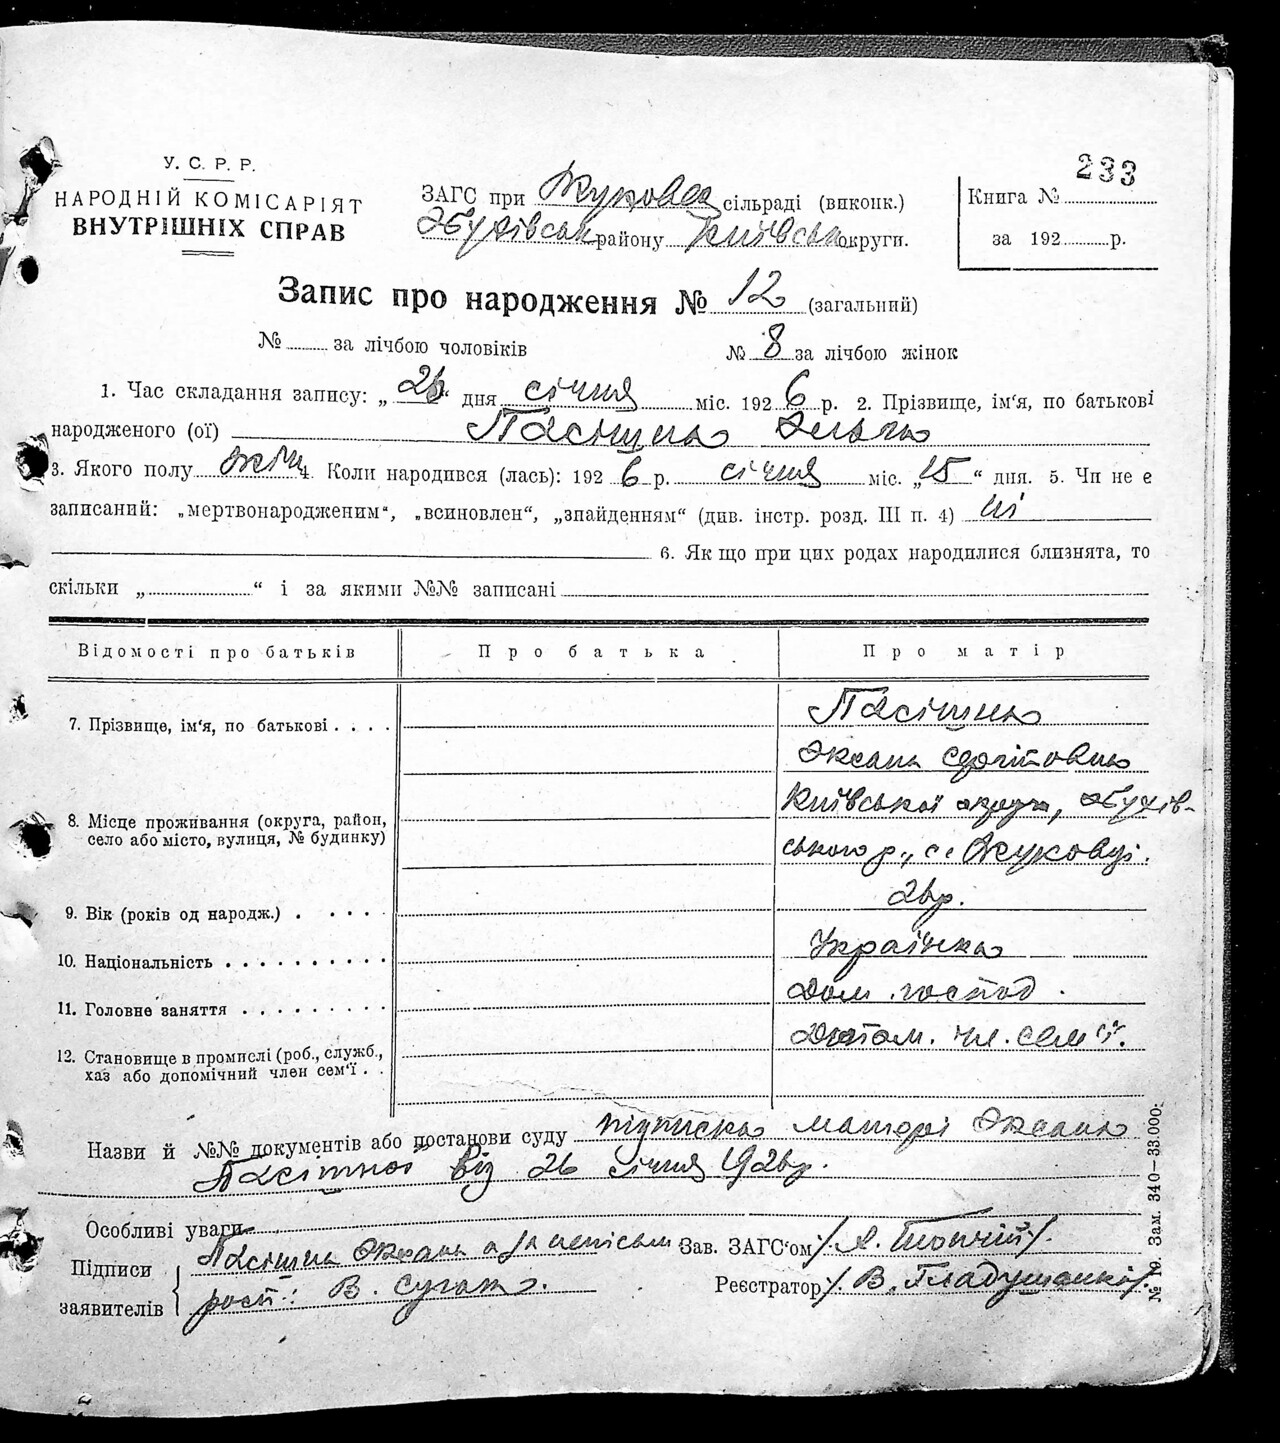 233
У. С. Р. Р.
НАРОДНІЙ КОМІСАРІЯТ
ВНУТРІШНІХ СПРАВ
ЗАГС при сільраді (виконк.)
району Київськ округи.
Книга №
за 192 р.
Запис про народження № 12 (загальний)
№ за лічбою чоловіків
№ 8 за лічбою жінок
1. Час складання запису: „26“ дня січня міс. 1926 р. 2. Прізвище, ім‘я, по батькові
народженого (ої)
3. Якого полу жін 4. Коли народився (лась): 1926 р. січня міс. „15“ дня. 5. Чи не є
записаний: „мертвонародженим“, „всиновлен“, „знайденням“ (див. інстр. розд. III п. 4) ні
6. Як що при цих родах народилися близнята, то
скільки „ “ і за якими №№ записані
Відомості про батьків Про батька Про матір
7. Прізвище, ім‘я, по батькові . . . .
Оксана
8. Місце проживання (округа, район,
село або місто, вулиця, № будинку)
Київської округи, Обухів-
ського р., с. Жуковці.
9. Вік (років од народж.) . . . . . 26 р.
10. Національність . . . . . . . . . . Українка
11. Головне заняття . . . . . . . . . Дом. господ.
12. Становище в промислі (роб., служб.,
хаз або допомічний член сем‘ї . .
чл. сем‘ї.
Назви й №№ документів або постанови суду підписка матері Оксани
від 26 січня 1926 р.
Особливі уваги
Підписи
заявителів
Оксана
В.
Зав. ЗАГС‘ом /А.
Реєстратор /В. Гладушенко/
№ 19. Зам. 340—33.000.